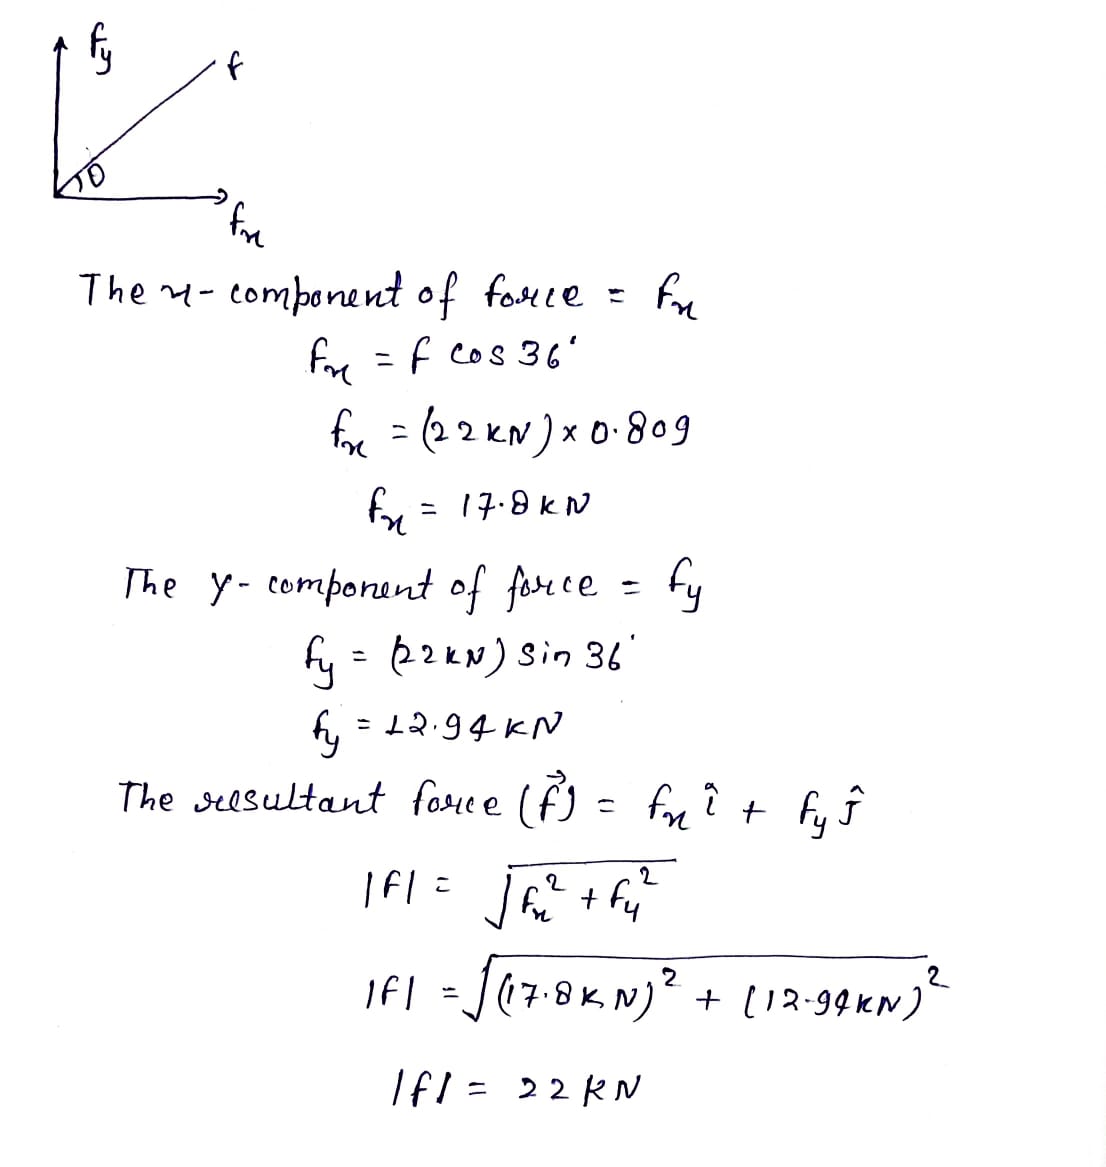 fy
f
θ
fx
The x-component of force = fx
fx = f cos 36°
fx = (22 KN) x 0.809
fx = 17.8 KN
The y-component of force = fy
fy = (22KN) Sin 36°
fy = 12.94 KN
The resultant force (f⃗) = fx î + fy ĵ
|f| = √fx² + fy²
|f| = √(17.8 KN)² + (12.94KN)²
|f| = 22 KN